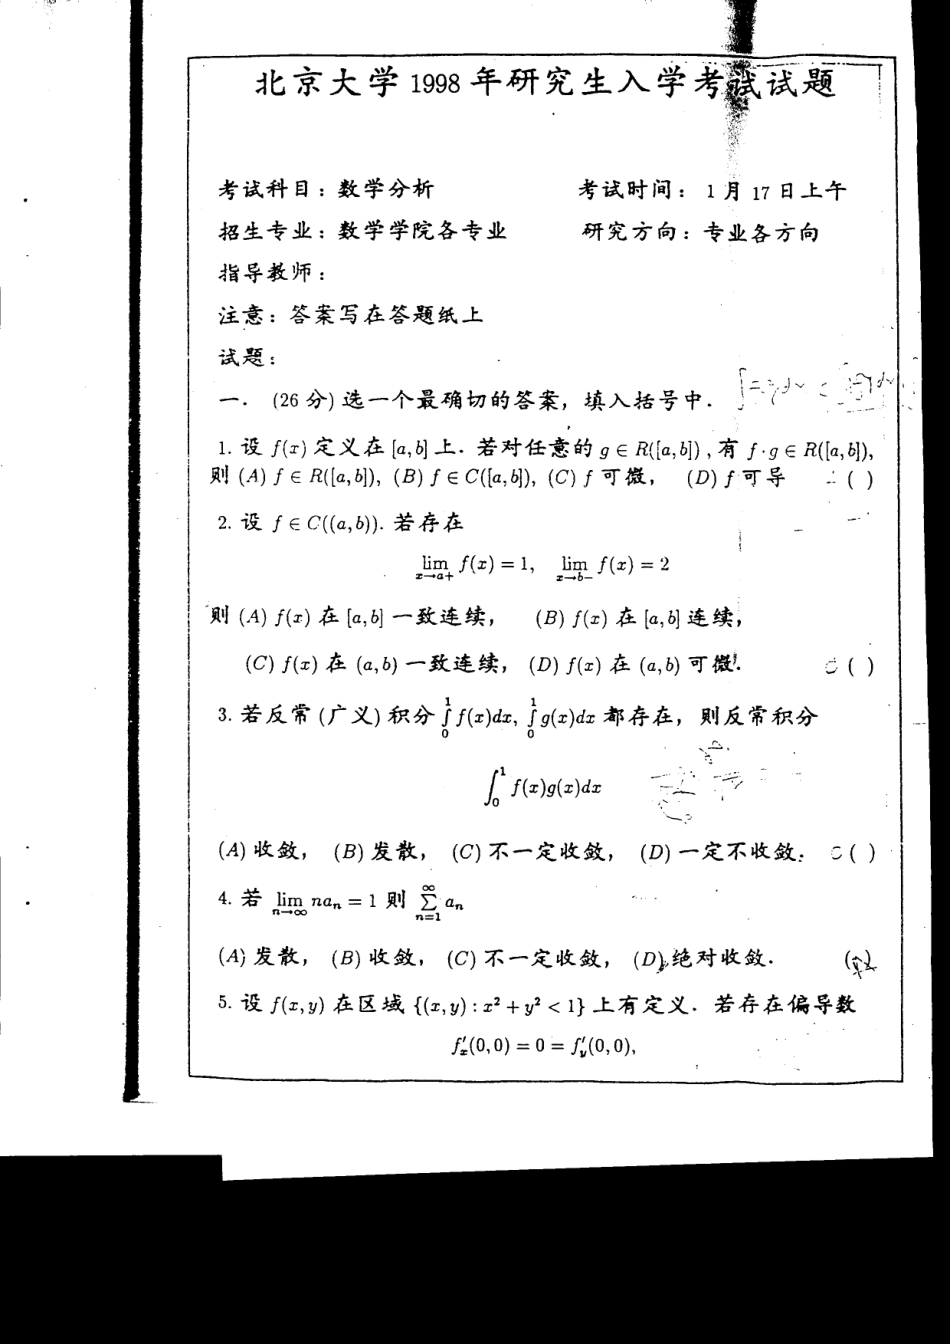 北京大学 1998 年研究生入学考试试题
考试科目：数学分析 考试时间： 1 月 17 日上午
招生专业：数学学院各专业 研究方向：专业各方向
指导教师：
注意：答案写在答题纸上
试题：
一． (26 分) 选一个最确切的答案，填入括号中．
1. 设 f(x) 定义在 [a,b] 上．若对任意的 g ∈ R([a,b]) , 有 f·g ∈ R([a,b]),
则 (A) f ∈ R([a,b]), (B) f ∈ C([a,b]), (C) f 可微， (D) f 可导 ( )
2. 设 f ∈ C((a,b)). 若存在
lim_{x→a+} f(x) = 1, lim_{x→b−} f(x) = 2
则 (A) f(x) 在 [a,b] 一致连续， (B) f(x) 在 [a,b] 连续，
(C) f(x) 在 (a,b) 一致连续， (D) f(x) 在 (a,b) 可微． ( )
3. 若反常 (广义) 积分 ∫_0^1 f(x)dx, ∫_0^1 g(x)dx 都存在，则反常积分
∫_0^1 f(x)g(x)dx
(A) 收敛， (B) 发散， (C) 不一定收敛， (D) 一定不收敛． ( )
4. 若 lim_{n→∞} na_n = 1 则 ∑_{n=1}^∞ a_n
(A) 发散， (B) 收敛， (C) 不一定收敛， (D) 绝对收敛． ( )
5. 设 f(x,y) 在区域 {(x,y) : x² + y² < 1} 上有定义．若存在偏导数
f′_x(0,0) = 0 = f′_y(0,0),